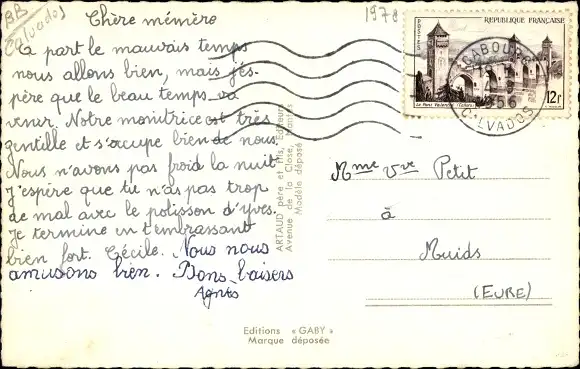 BB
Calvados
Chère mémère
à part le mauvais temps
nous allons bien, mais j'es-
père que le beau temps va
venir. Notre monitrice est très
gentille et s'occupe bien de nous.
Nous n'avons pas froid la nuit
j'espère que tu n'as pas trop
de mal avec le polisson d'Yves.
je termine en t'embrassant
bien fort. Cécile. Nous nous
amusons bien. Bons baisers
Agnès
ARTAUD père et fils, éditeurs
Avenue de la Close, Nantes
Modèle déposé
Editions « GABY »
Marque déposée
197
POSTES
REPUBLIQUE FRANÇAISE
Le Pont Valentré (Cahors)
12F
CABOURG
1956
CALVADOS
Mme Vve Petit
à
Muids
(EURE)